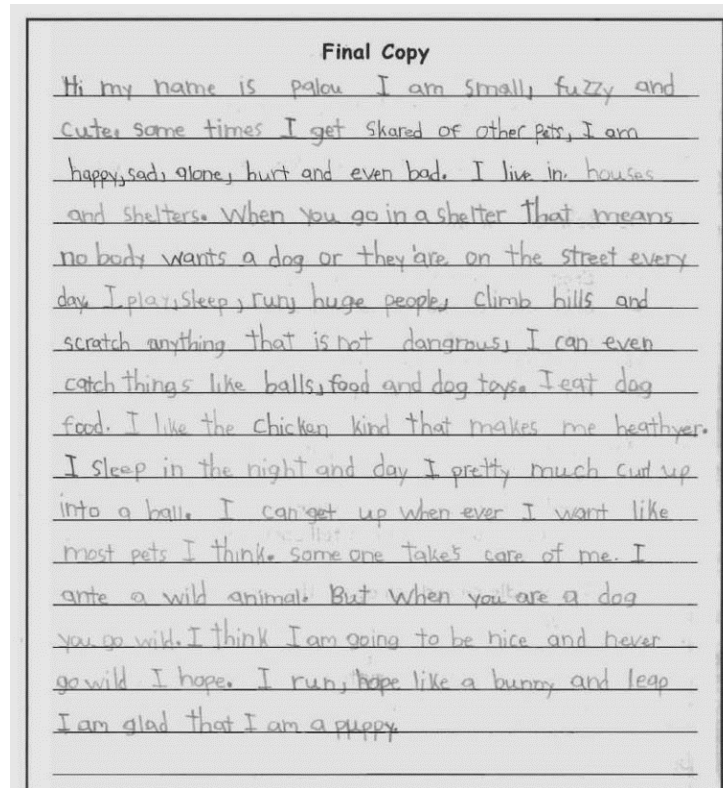 Final Copy
Hi my name is palou I am small, fuzzy and
cute. some times I get skared of other pets, I am
happy, sad, alone, hurt and even bad. I live in. houses
and shelters. When you go in a shelter that means
no body wants a dog or they'are on the street every
day. I play, sleep, run, huge people, climb hills and
scratch anything that is not dangrous, I can even
catch things like balls, food and dog toys. I eat dog
food. I like the chicken kind that makes me heathyer.
I sleep in the night and day I pretty much curl up
into a ball. I can get up when ever I want like
most pets I think. some one take's care of me. I
ante a wild animal. But when you are a dog
you go wild. I think I am going to be nice and never
go wild I hope. I run, hope like a bunny and leap
I am glad that I am a puppy.